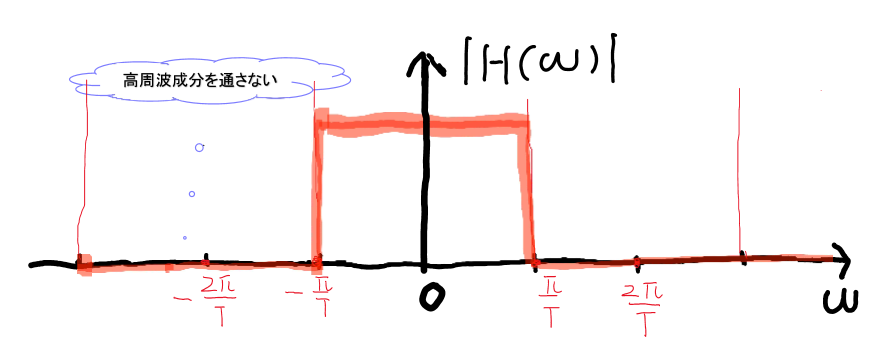 |H(ω)|
高周波成分を通さない
-2π/T
-π/T
0
π/T
2π/T
ω